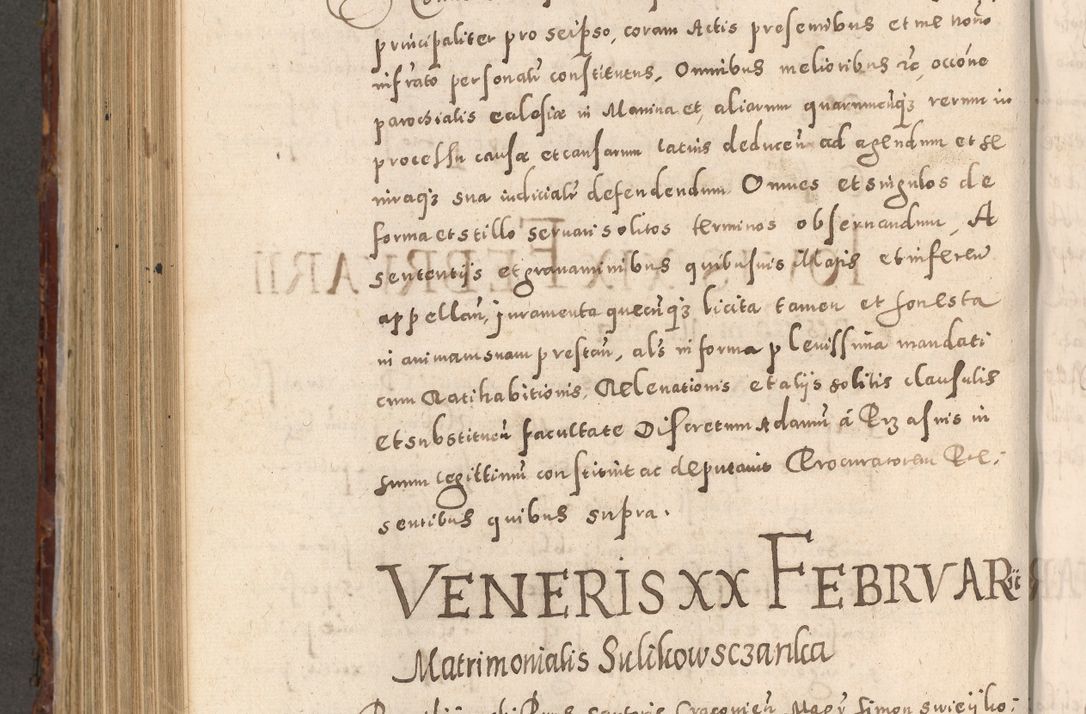 principaliter pro seipso, coram Actis presentibus et me notō
infrato personalr̄ constitutus, Omnibus melioribus rc̄, occōne
parochialis ecclesiæ in Manina et, aliarum quarumcūqȝ rerum in
processu causæ et causarum latius deduceñ ad agendum et se
iuraqȝ sua iudicialr̄ defendendum Omnes et singulos de
forma et stillo servari solitos terminos observandum, A
sententijs et gravaminibus quibusuis illatis et infereñ
appellañ, juramenta quecūqȝ licita tamen et honesta
in animam suam prestañ, als̄ in forma plenissima mandati
cum Ratihabitionis, Relevationis et alijs solitis clausulis
et substitueñ facultate Discretum Adamū à
suum legittimū constituit ac deputavit Procuratorem Pre:
sentibus quibus supra.
VENERIS XX FEBRVARii
Matrimonialis Sulikowsczanka
Cracovieñ Magr̄ Simon